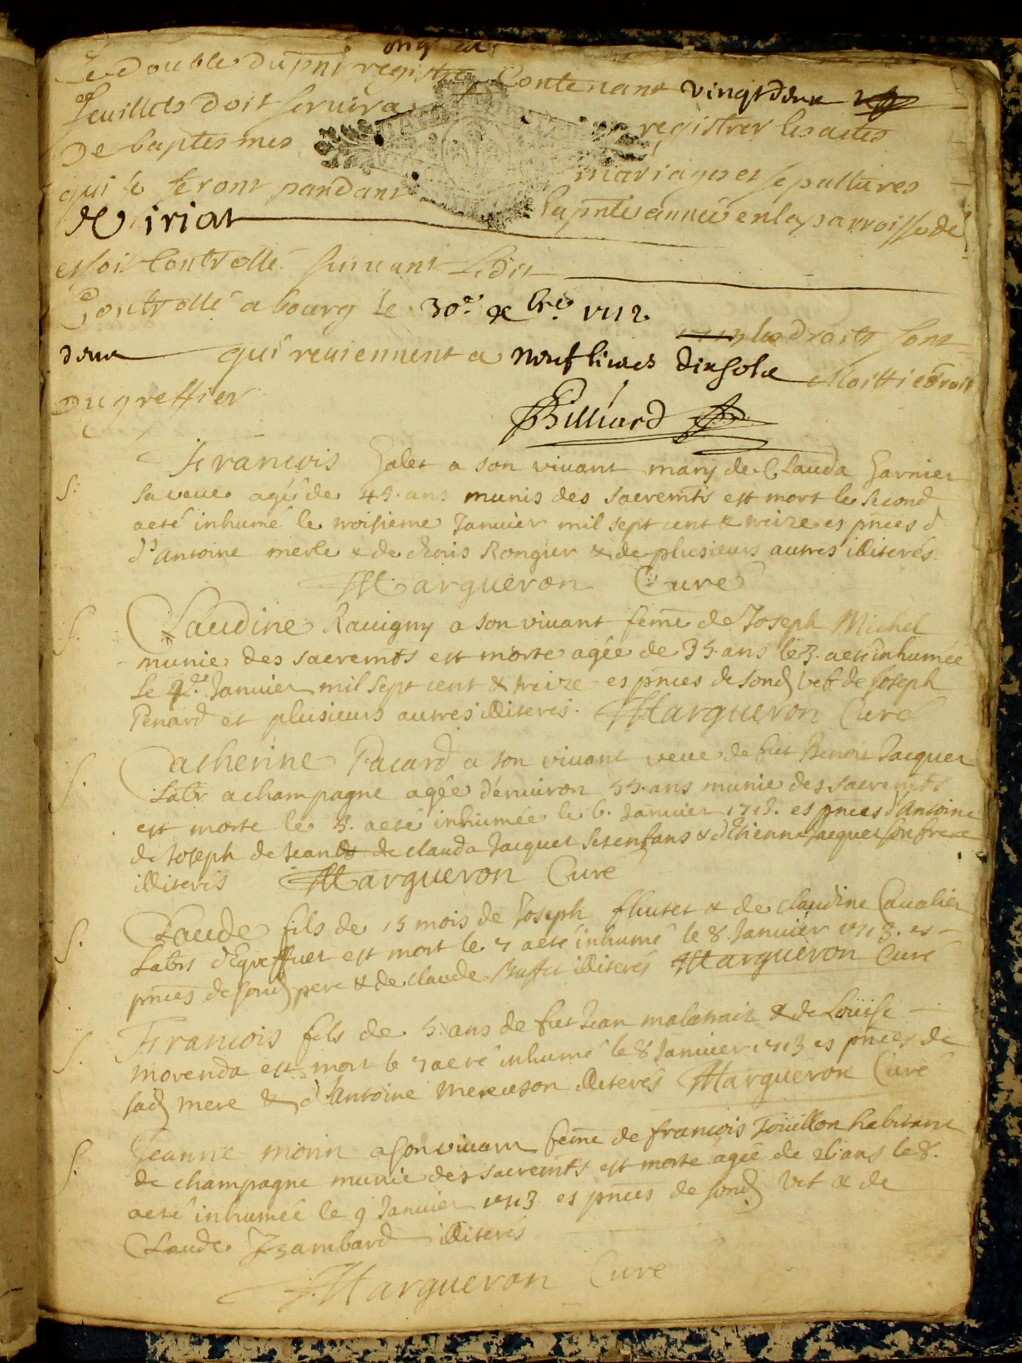 Le double du pnt registre Contenant vingt deux
feuillets doit servir a registrer les actes
De baptesmes mariages et sepultures
qui se feront pandant la pnte année en la parroisse de
Viriat
et soit Controllé suivant Ledit
Controllé a bourg le 30e xbre 1712
les droits sont
deux qui reviennent a neuf livres dix sols Moittié droit
Du greffier
Billiard
S. Francois Galet a son vivant mary de Clauda Garnier
sa veuve agé de 45 ans munis des sacremts est mort le second
a eté inhumé le troisieme Janvier mil sept cent & treize es pnces d
d'Antoine merle & de Rongier & de plusieurs autres illiterés.
Margueron Curé
S. Claudine Ravigny a son vivant feme de Joseph Michel
munie des sacremts est morte agée de 35 ans le 3. a eté inhumée
le Janvier mil sept cent & treize es pnces de sond vef de Joseph
Penard et plusieurs autres illiterés. Margueron Curé
S. Catherine Pacard a son vivant veve de fut Benoit Jacquet
labr a champagne agée d'environ 55 ans munie des sacremts
est morte le 5. a eté inhumée le 6. Janvier 1713. es pnces d'Antoine
de Joseph de Jean de clauda Jacquet ses enfans & d'Etienne Jacquet son frere
illiterés Margueron Curé
S. Claude fils de 15 mois de Joseph fluitet & de claudine Cavalier
Labrs est mort le 7 a eté inhumé le 8 Janvier 1713. es
pnces de sond pere & de claude Buffet illiterés Margueron Curé
S. Francois fils de 5 ans de fut Jean & de Loüise
morenda est mort le 7 a eté inhumé le 8 Janvier 1713 es pnces de
sad mere & d'Antoine illiterés Margueron Curé
S. Jeanne morin a son vivant feme de francois Toüillon habitant
de champagne munie des sacremts est morte agée de 26 ans le 8.
a eté inhumée le 9 Janvier 1713 es pnces de sond vef & de
Claude illiterés
Margueron Curé